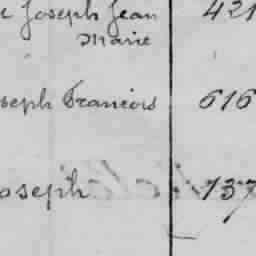 Joseph Jean 421
Marie
Joseph Francois 616
Joseph 137